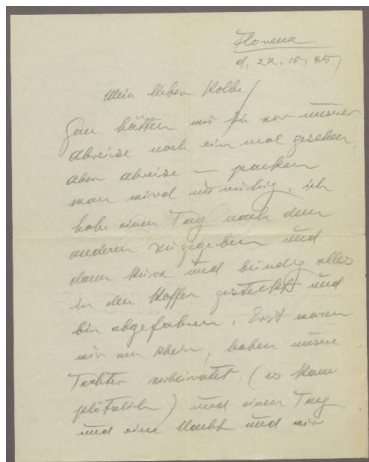 Florenz
d. 22. 10. 35
Mein lieber Kolbe!
Gern hätten wir Sie vor unserer
Abreise noch ein mal gesehen,
aber Abreise – packen
man wird unruhig, ich
habe einen Tag nach dem
anderen zugegeben und
dann kurz und bündig alles
in den Koffer gesteckt und
bin abgefahren. Erst waren
wir am Rhein, haben unsere
Tochter verheiratet (es kam
plötzlich) und einen Tag
und eine Nacht und wir